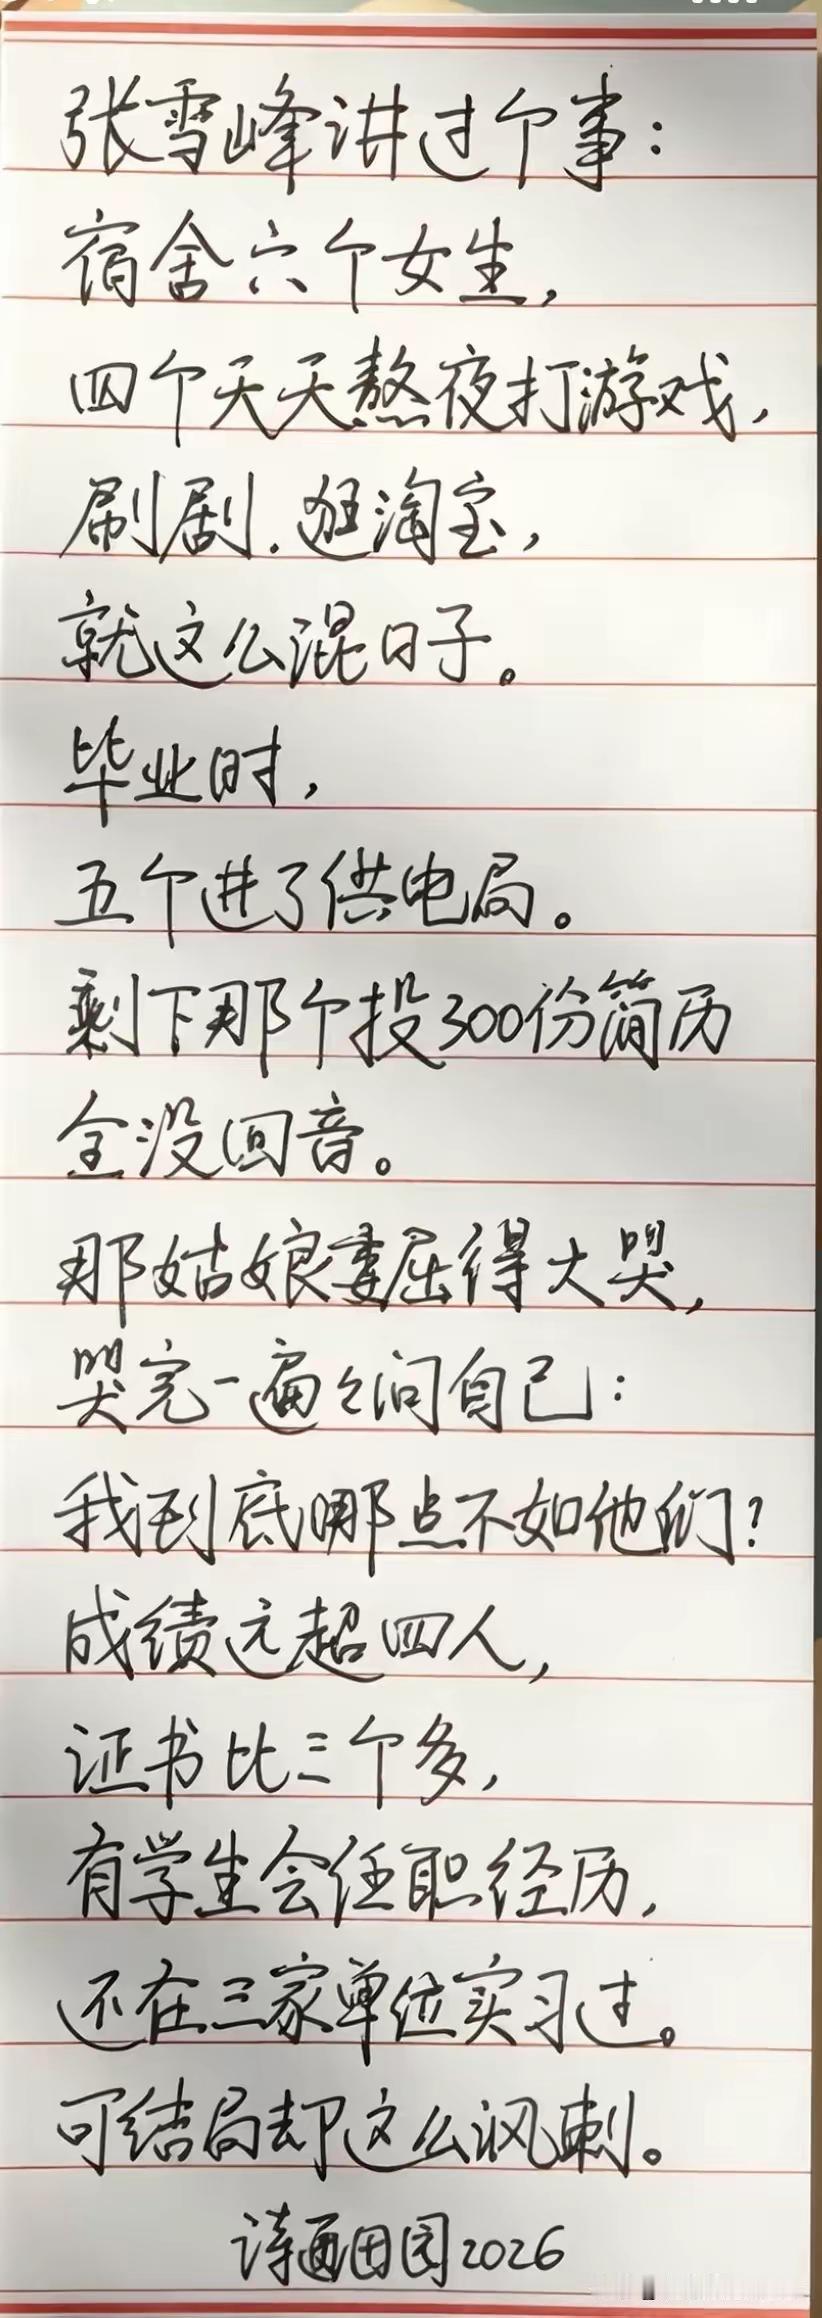 张雪峰讲过个事：
宿舍六个女生，
四个天天熬夜打游戏，
刷剧.逛淘宝，
就这么混日子。
毕业时，
五个进了供电局。
剩下那个投300份简历
全没回音。
那姑娘委屈得大哭，
哭完一遍々问自己：
我到底哪点不如他们？
成绩远超四人，
证书比三个多，
有学生会任职经历，
还在三家单位实习过。
可结局却这么讽刺。
诗画田园2026